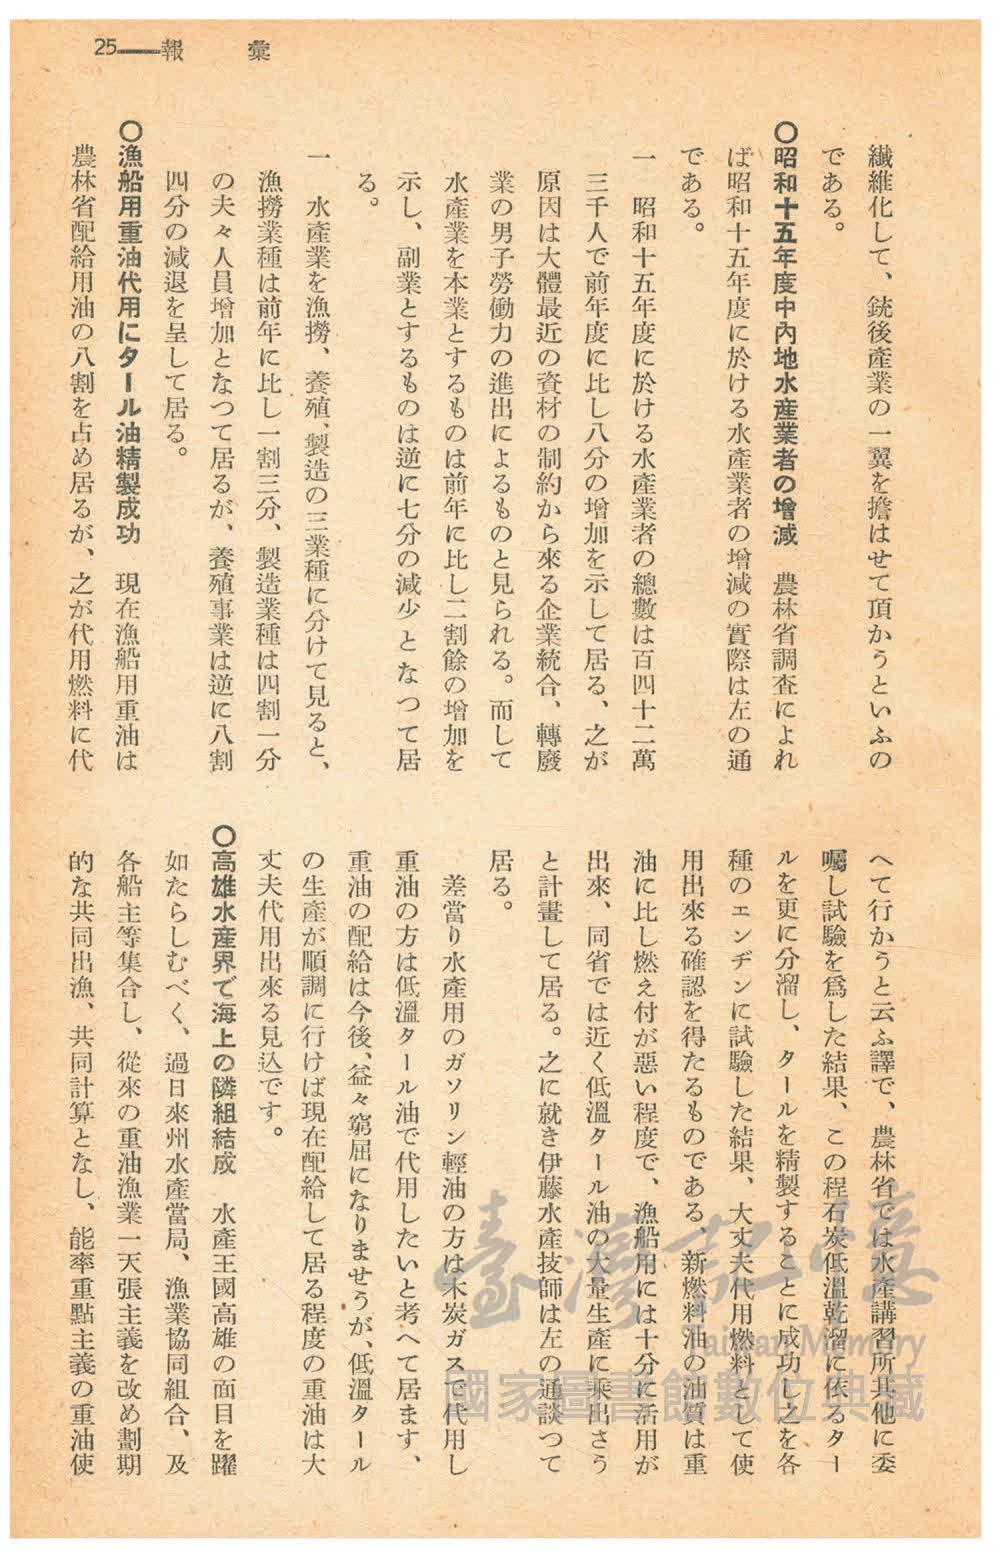 25——報 彙
纖維化して、銃後產業の一翼を擔はせて頂かうといふの
である。
〇昭和十五年度中內地水產業者の增減 農林省調査によれ
ば昭和十五年度に於ける水產業者の增減の實際は左の通
である。
一 昭和十五年度に於ける水產業者の總數は百四十二萬
三千人で前年度に比し八分の增加を示して居る、之が
原因は大體最近の資材の制約から來る企業統合、轉廢
業の男子勞働力の進出によるものと見られる。而して
水產業を本業とするものは前年に比し二割餘の增加を
示し、副業とするものは逆に七分の減少となつて居
る。
一 水產業を漁撈、養殖、製造の三業種に分けて見ると、
漁撈業種は前年に比し一割三分、製造業種は四割一分
の夫々人員增加となつて居るが、養殖事業は逆に八割
四分の減退を呈して居る。
〇漁船用重油代用にタール油精製成功 現在漁船用重油は
農林省配給用油の八割を占め居るが、之が代用燃料に代
へて行かうと云ふ譯で、農林省では水產講習所其他に委
囑し試驗を爲した結果、この程石炭低溫乾溜に依るター
ルを更に分溜し、タールを精製することに成功し之を各
種のエンヂンに試驗した結果、大丈夫代用燃料として使
用出來る確認を得たるものである、新燃料油の油質は重
油に比し燃え付が悪い程度で、漁船用には十分に活用が
出來、同省では近く低溫タール油の大量生產に乘出さう
と計畫して居る。之に就き伊藤水產技師は左の通談つて
居る。
差當り水產用のガソリン輕油の方は木炭ガスで代用し
重油の方は低溫タール油で代用したいと考へて居ます、
重油の配給は今後、益々窮屈になりませうが、低溫タール
の生產が順調に行けば現在配給して居る程度の重油は大
丈夫代用出來る見込です。
〇高雄水產界で海上の隣組結成 水產王國高雄の面目を躍
如たらしむべく、過日來州水產當局、漁業協同組合、及
各船主等集合し、從來の重油漁業一天張主義を改め劃期
的な共同出漁、共同計算となし、能率重點主義の重油使
臺灣記憶
Taiwan Memory
國家圖書館數位典藏